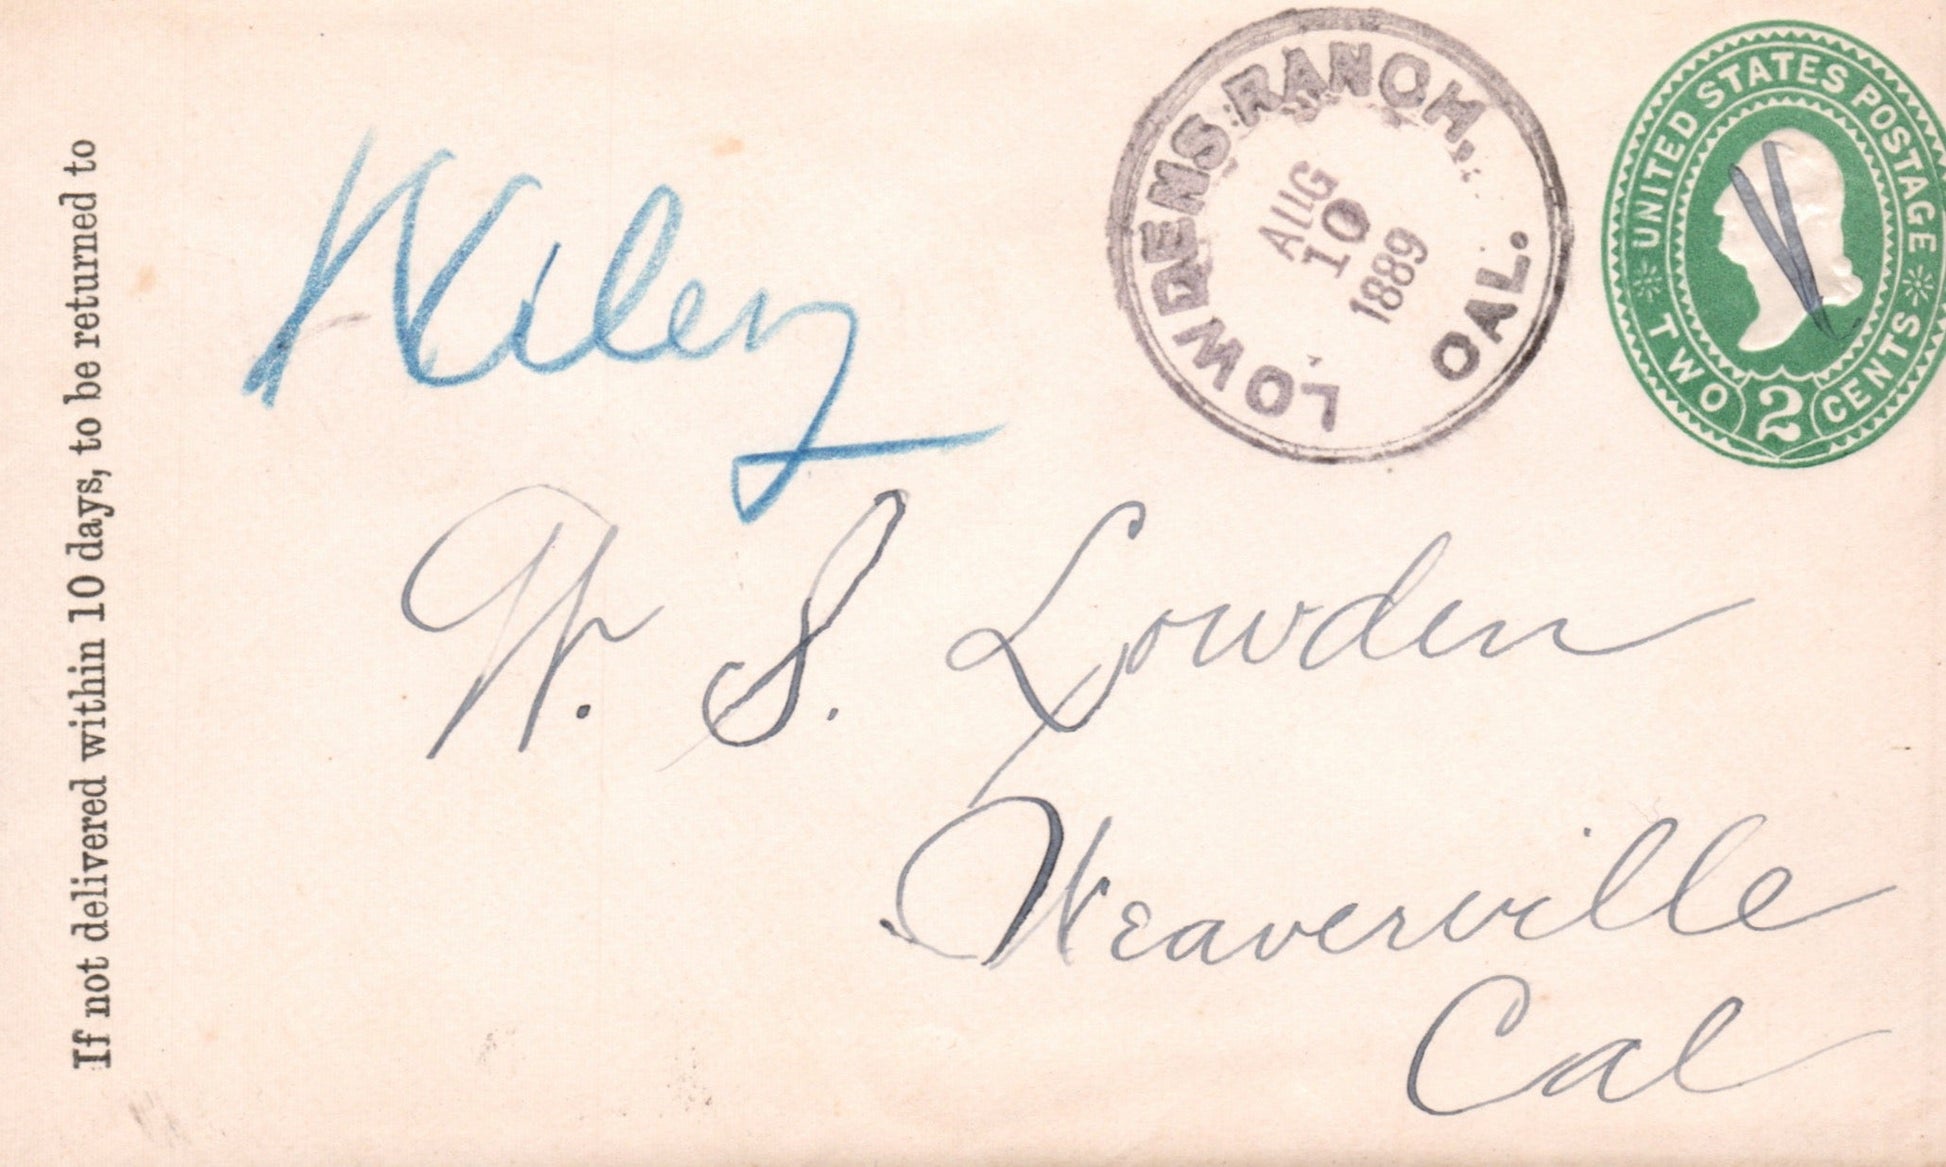 If not delivered within 10 days, to be returned to
Wiley
LOWDENS RANCH, CAL.
AUG
10
1889
UNITED STATES POSTAGE
TWO 2 CENTS
W. S. Lowden
Weaverville
Cal